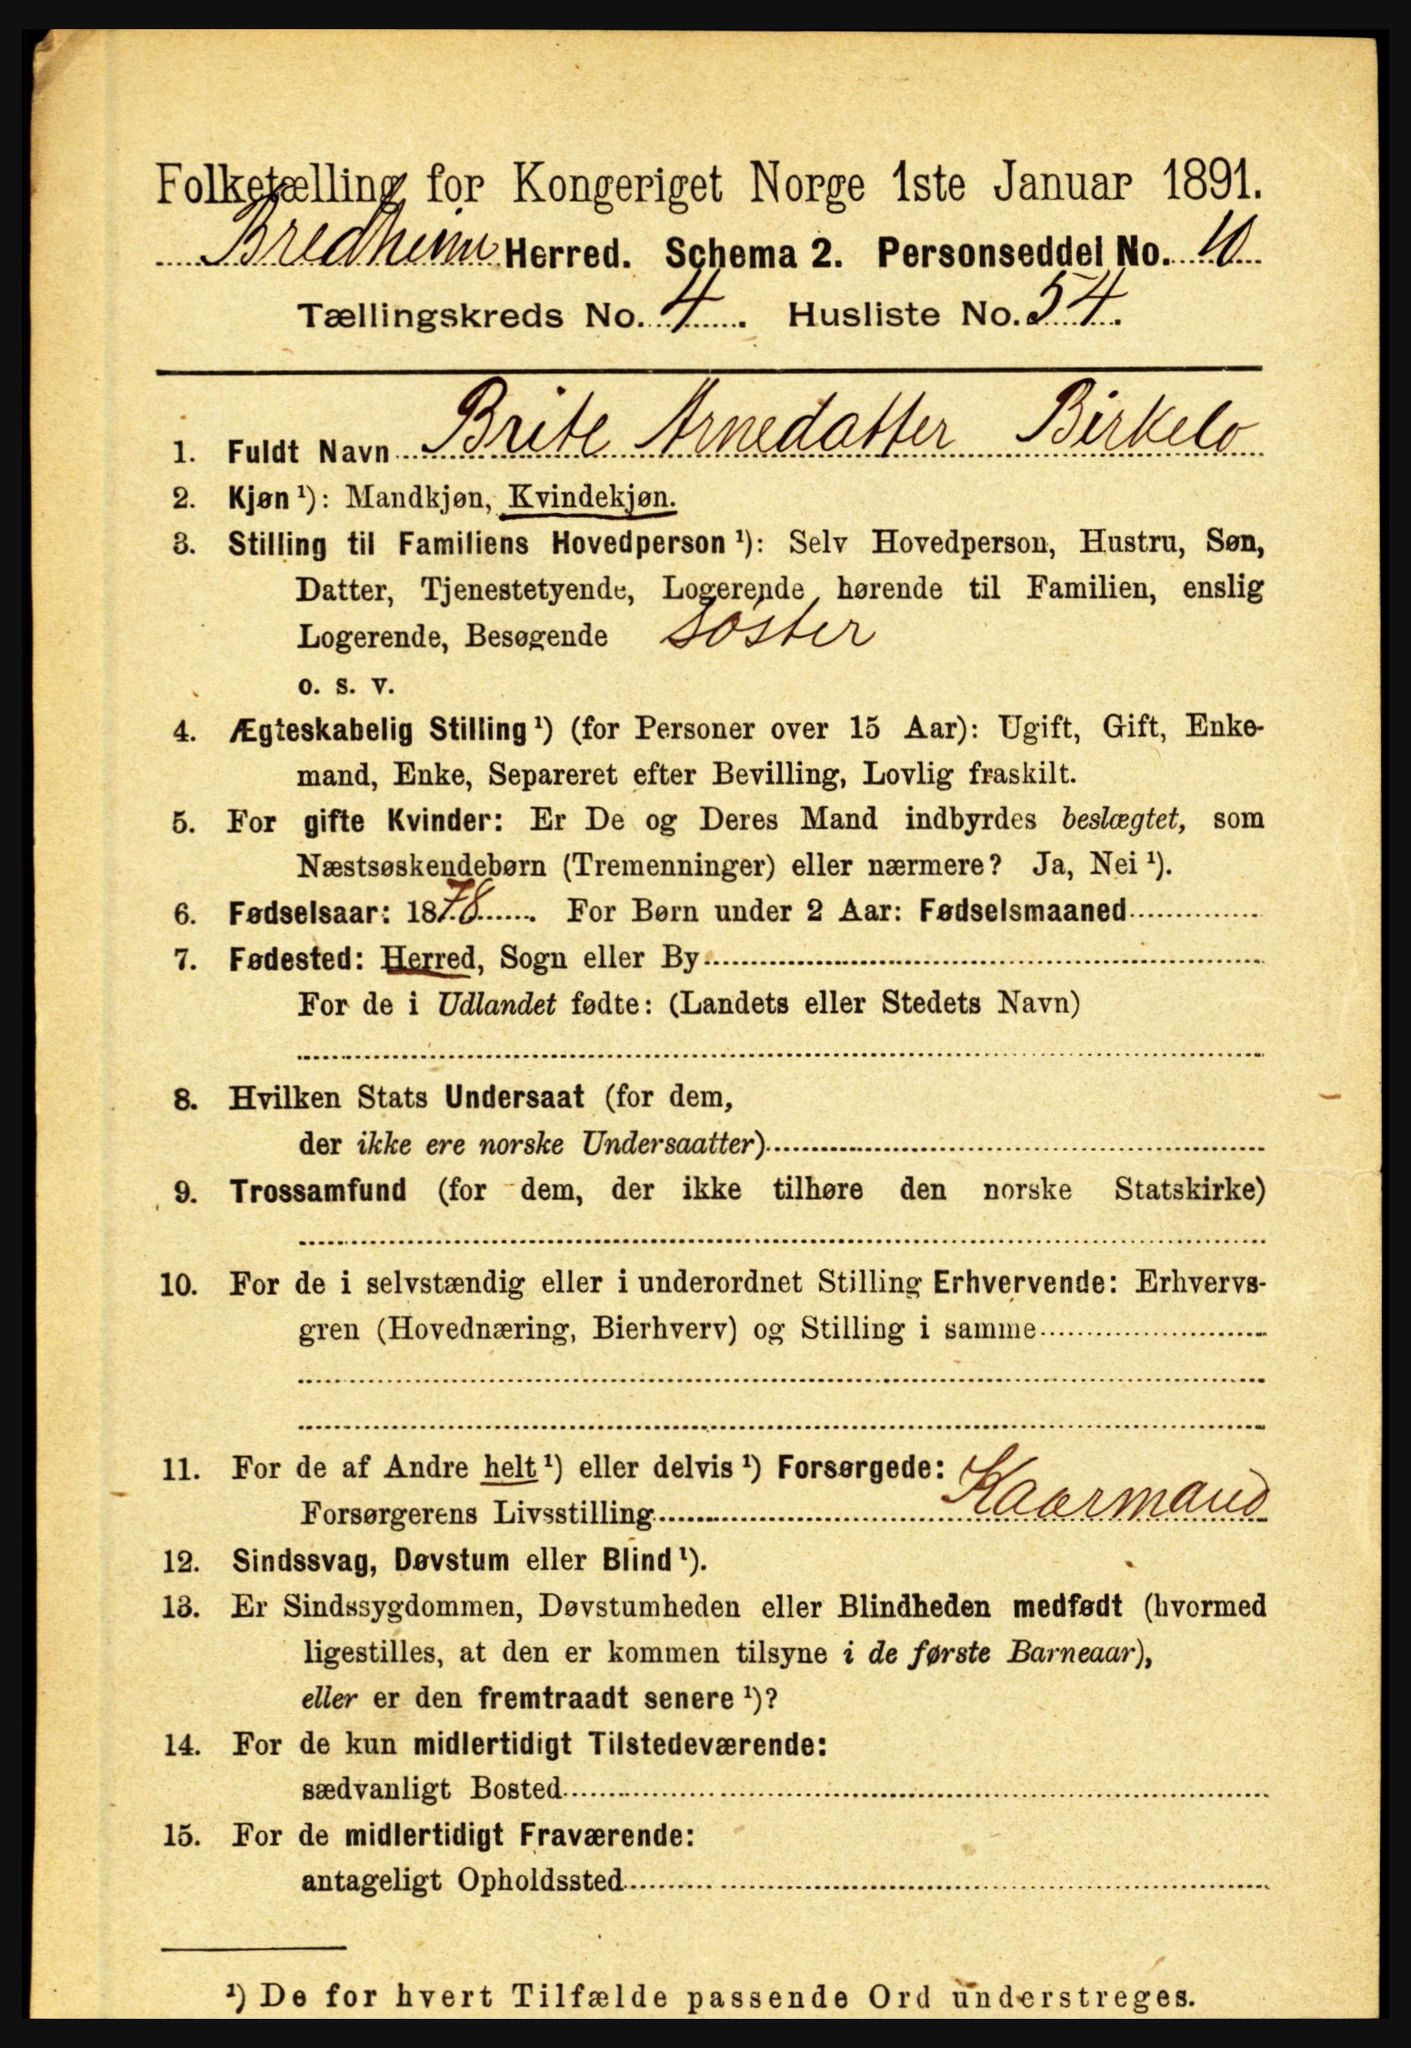 Folketælling for Kongeriget Norge 1ste Januar 1891.
Bredheim Herred. Schema 2. Personseddel No. 10
Tællingskreds No. 4. Husliste No. 54.
1. Fuldt Navn Brite Arnedatter Birkelo
2. Kjøn ¹): Mandkjøn, Kvindekjøn.
3. Stilling til Familiens Hovedperson ¹): Selv Hovedperson, Hustru, Søn,
Datter, Tjenestetyende, Logerende hørende til Familien, enslig
Logerende, Besøgende Söster
o. s. v.
4. Ægteskabelig Stilling ¹) (for Personer over 15 Aar): Ugift, Gift, Enke-
mand, Enke, Separeret efter Bevilling, Lovlig fraskilt.
5. For gifte Kvinder: Er De og Deres Mand indbyrdes beslægtet, som
Næstsøskendebørn (Tremenninger) eller nærmere? Ja, Nei ¹).
6. Fødselsaar: 1878. For Børn under 2 Aar: Fødselsmaaned
7. Fødested: Herred, Sogn eller By
For de i Udlandet fødte: (Landets eller Stedets Navn)
8. Hvilken Stats Undersaat (for dem,
der ikke ere norske Undersaatter)
9. Trossamfund (for dem, der ikke tilhøre den norske Statskirke)
10. For de i selvstændig eller i underordnet Stilling Erhvervende: Erhvervs-
gren (Hovednæring, Bierhverv) og Stilling i samme
11. For de af Andre helt ¹) eller delvis ¹) Forsørgede:
Forsørgerens Livsstilling Kaarmand
12. Sindssvag, Døvstum eller Blind ¹).
13. Er Sindssygdommen, Døvstumheden eller Blindheden medfødt (hvormed
ligestilles, at den er kommen tilsyne i de første Barneaar),
eller er den fremtraadt senere ¹)?
14. For de kun midlertidigt Tilstedeværende:
sædvanligt Bosted
15. For de midlertidigt Fraværende:
antageligt Opholdssted
¹) De for hvert Tilfælde passende Ord understreges.